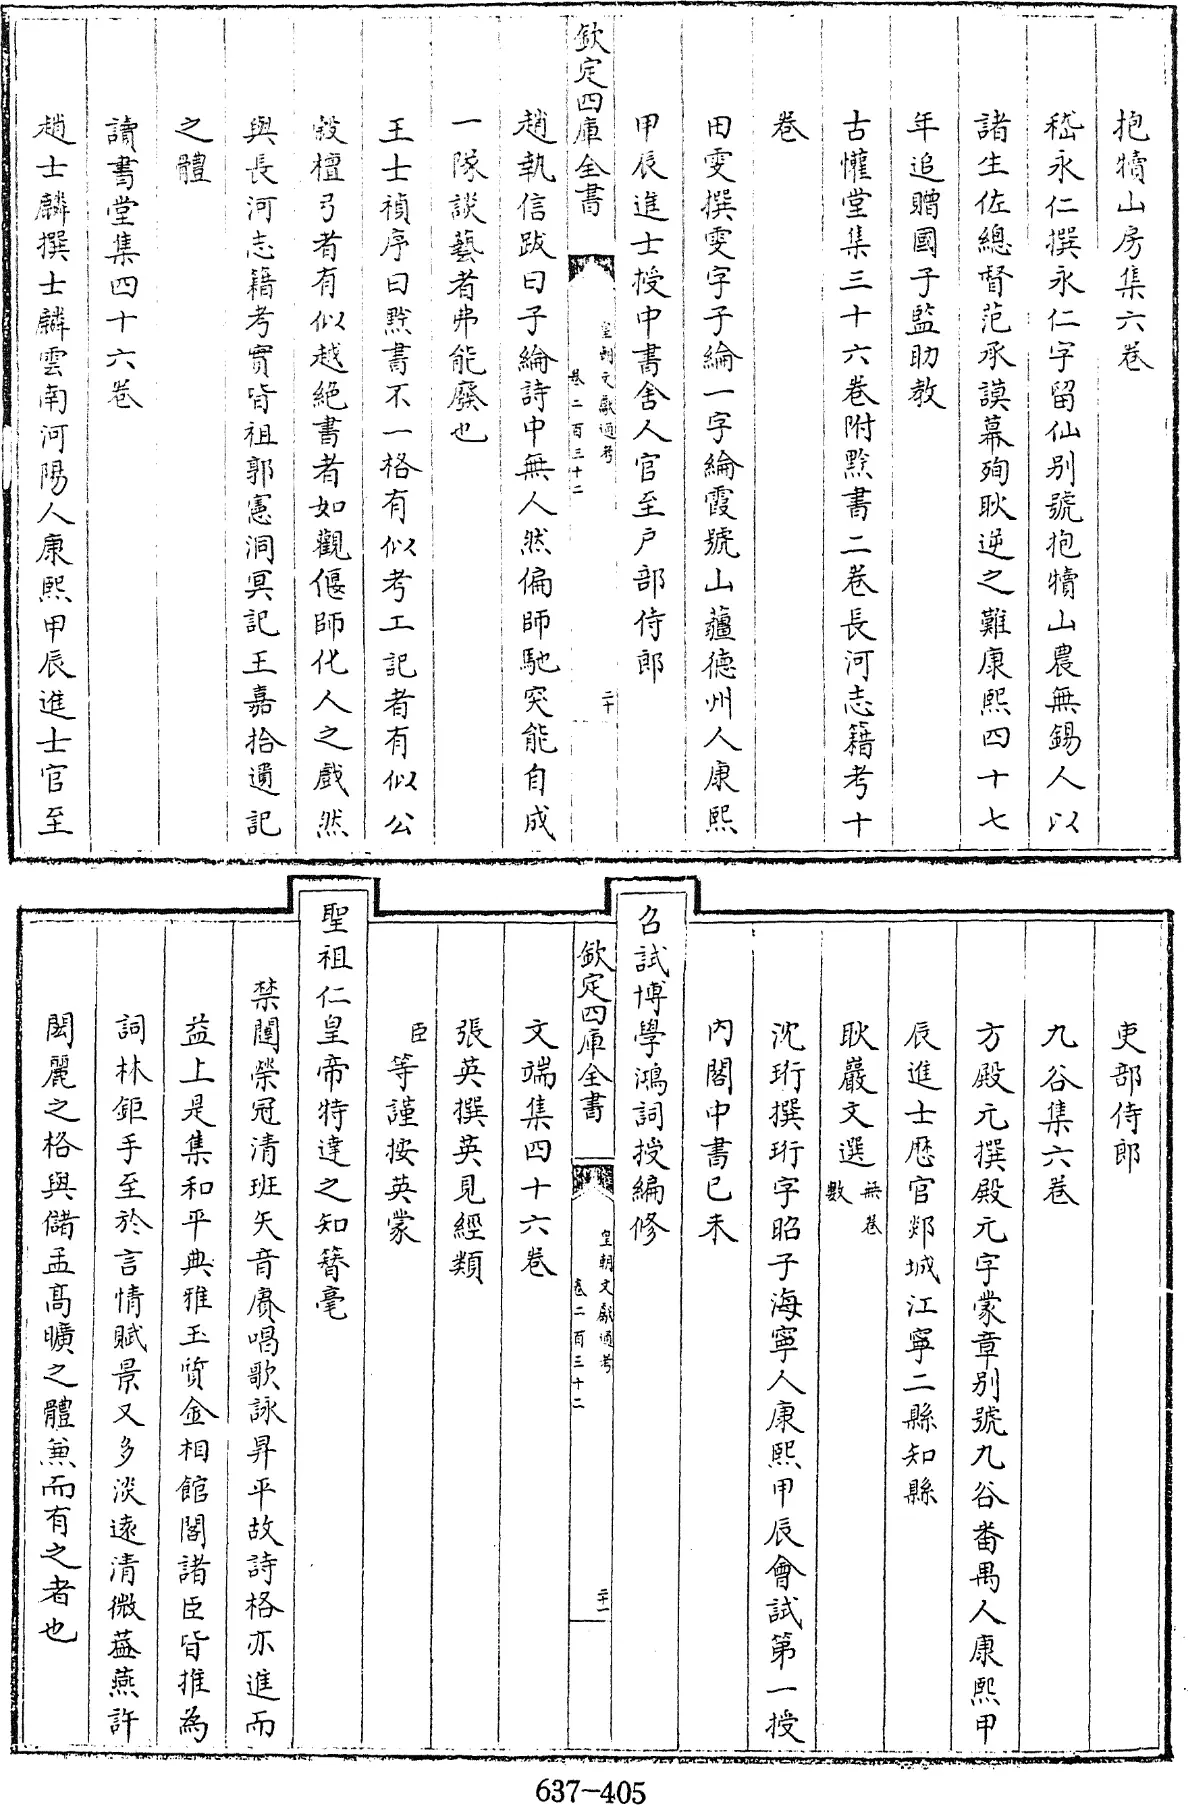 抱犢山房集六卷
嵇永仁撰永仁字留仙别號抱犢山農無錫人以
諸生佐總督范承謨幕殉耿逆之難康熙四十七
年追贈國子監助教
古懽堂集三十六卷附黔書二卷長河志籍考十
卷
田雯撰雯字子綸一字綸霞號山薑德州人康熙
甲辰進士授中書舍人官至戶部侍郎
欽定四庫全書
皇朝文獻通考
卷二百三十二
二十
趙執信跋曰子綸詩中無人然偏師馳突能自成
一隊談藝者弗能廢也
王士禎序曰黔書不一格有似考工記者有似公
穀檀弓者有似越絶書者如觀偃師化人之戲然
與長河志籍考實皆祖郭憲洞冥記王嘉拾遺記
之體
讀書堂集四十六卷
趙士麟撰士麟雲南河陽人康熙甲辰進士官至
吏部侍郎
九谷集六卷
方殿元撰殿元字蒙章别號九谷番禺人康熙甲
辰進士歴官郯城江寧二縣知縣
耿巖文選無卷數
沈珩撰珩字昭子海寧人康熙甲辰會試第一授
内閣中書已未
召試博學鴻詞授編修
欽定四庫全書
皇朝文獻通考
卷二百三十二
二十一
文端集四十六卷
張英撰英見經類
臣等謹按英蒙
聖祖仁皇帝特達之知簪毫
禁闥榮冠清班矢音賡唱歌詠昇平故詩格亦進而
益上是集和平典雅玉質金相館閣諸臣皆推為
詞林鉅手至於言情賦景又多淡遠清微葢燕許
閎麗之格與儲孟高曠之體兼而有之者也
637-405